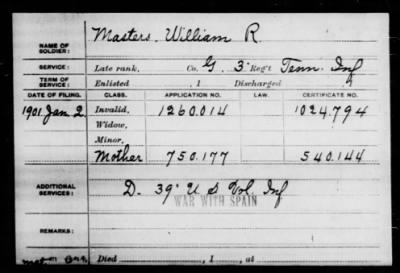 NAME OF SOLDIER: Masters. William R.
SERVICE: Late rank, Co. G. 3" Reg't Tenn. Inf
TERM OF SERVICE: Enlisted , 1 Discharged
DATE OF FILING. CLASS. APPLICATION NO. LAW. CERTIFICATE NO.
1901 Jan 2. Invalid, 1260.014 1024.794
Widow,
Minor,
Mother 750.177 540.144
ADDITIONAL SERVICES: D. 39" U S Vol. Inf
WAR WITH SPAIN
REMARKS:
Died , 1 , at